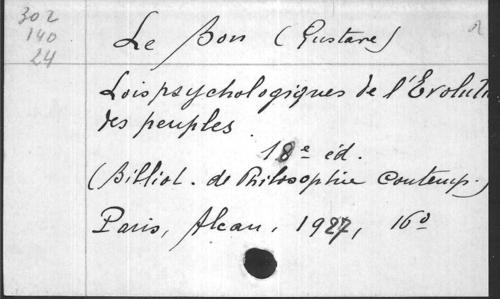 302
140
24
Le Bon (Gustave)
Lois psychologiques de l'Évoluti
des peuples
18e éd.
(Bibliot. de Philosophie Contemp.)
Paris, Alcan, 1927, 16º